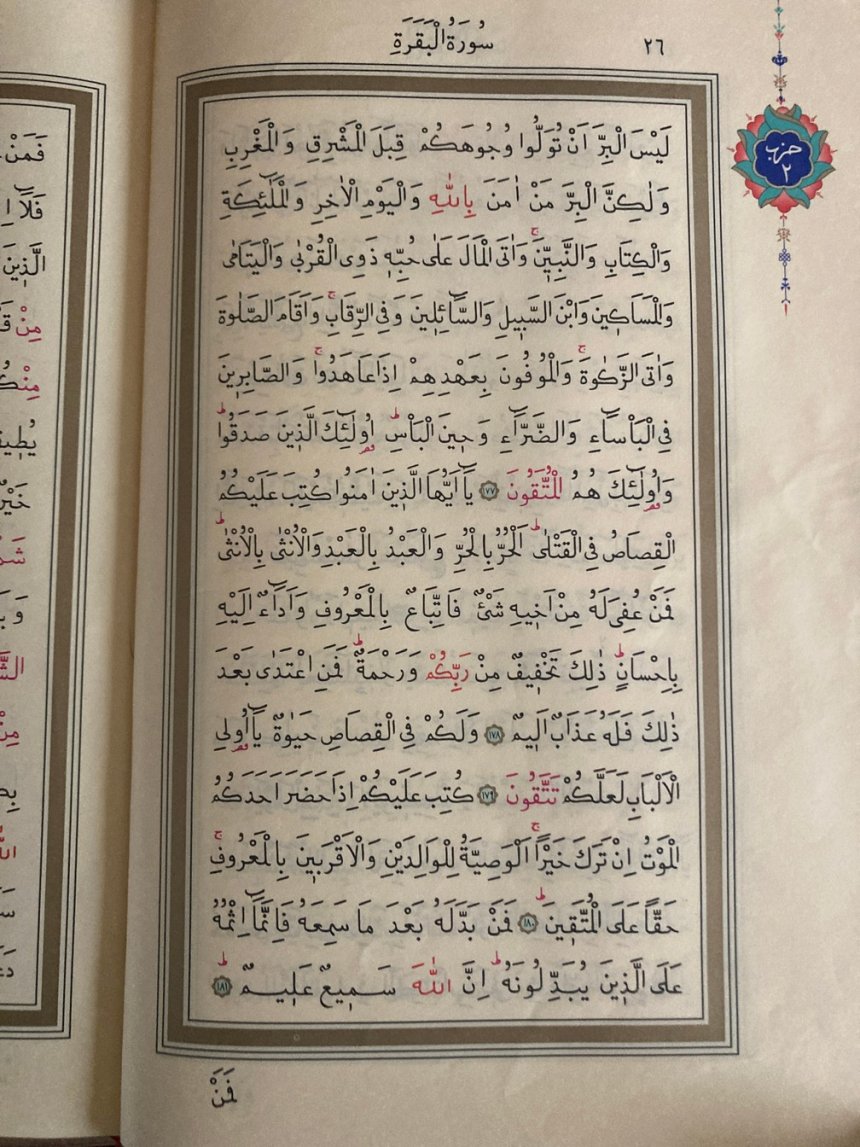 سُورَةُ الْبَقَرَةِ
٢٦
حزب
٢
لَيْسَ الْبِرَّ اَنْ تُوَلُّوا وُجُوهَكُمْ قِبَلَ الْمَشْرِقِ وَالْمَغْرِبِ
وَلٰكِنَّ الْبِرَّ مَنْ اٰمَنَ بِاللّٰهِ وَالْيَوْمِ الْاٰخِرِ وَالْمَلٰٓئِكَةِ
وَالْكِتَابِ وَالنَّبِيّٖنَۚ وَاٰتَى الْمَالَ عَلٰى حُبِّهٖ ذَوِي الْقُرْبٰى وَالْيَتَامٰى
وَالْمَسَاكٖينَ وَابْنَ السَّبٖيلِ وَالسَّٓائِلٖينَ وَفِي الرِّقَابِۚ وَاَقَامَ الصَّلٰوةَ
وَاٰتَى الزَّكٰوةَۚ وَالْمُوفُونَ بِعَهْدِهِمْ اِذَا عَاهَدُواۚ وَالصَّابِرٖينَ
فِي الْبَأْسَٓاءِ وَالضَّرَّٓاءِ وَحٖينَ الْبَأْسِؕ اُو۬لٰٓئِكَ الَّذٖينَ صَدَقُواؕ
وَاُو۬لٰٓئِكَ هُمُ الْمُتَّقُونَ ﴿١٧٧﴾ يَٓا اَيُّهَا الَّذٖينَ اٰمَنُوا كُتِبَ عَلَيْكُمُ
الْقِصَاصُ فِي الْقَتْلٰىؕ اَلْحُرُّ بِالْحُرِّ وَالْعَبْدُ بِالْعَبْدِ وَالْاُنْثٰى بِالْاُنْثٰىؕ
فَمَنْ عُفِيَ لَهُ مِنْ اَخٖيهِ شَيْءٌ فَاتِّبَاعٌ بِالْمَعْرُوفِ وَاَدَٓاءٌ اِلَيْهِ
بِاِحْسَانٍؕ ذٰلِكَ تَخْفٖيفٌ مِنْ رَبِّكُمْ وَرَحْمَةٌؕ فَمَنِ اعْتَدٰى بَعْدَ
ذٰلِكَ فَلَهُ عَذَابٌ اَلٖيمٌ ﴿١٧٨﴾ وَلَكُمْ فِي الْقِصَاصِ حَيٰوةٌ يَٓا اُو۬لِي
الْاَلْبَابِ لَعَلَّكُمْ تَتَّقُونَ ﴿١٧٩﴾ كُتِبَ عَلَيْكُمْ اِذَا حَضَرَ اَحَدَكُمُ
الْمَوْتُ اِنْ تَرَكَ خَيْرًاۚ اَلْوَصِيَّةُ لِلْوَالِدَيْنِ وَالْاَقْرَبٖينَ بِالْمَعْرُوفِۚ
حَقًّا عَلَى الْمُتَّقٖينَؕ ﴿١٨٠﴾ فَمَنْ بَدَّلَهُ بَعْدَ مَا سَمِعَهُ فَاِنَّمَٓا اِثْمُهُ
عَلَى الَّذٖينَ يُبَدِّلُونَهُؕ اِنَّ اللّٰهَ سَمٖيعٌ عَلٖيمٌؕ ﴿١٨١﴾
فَمَنْ